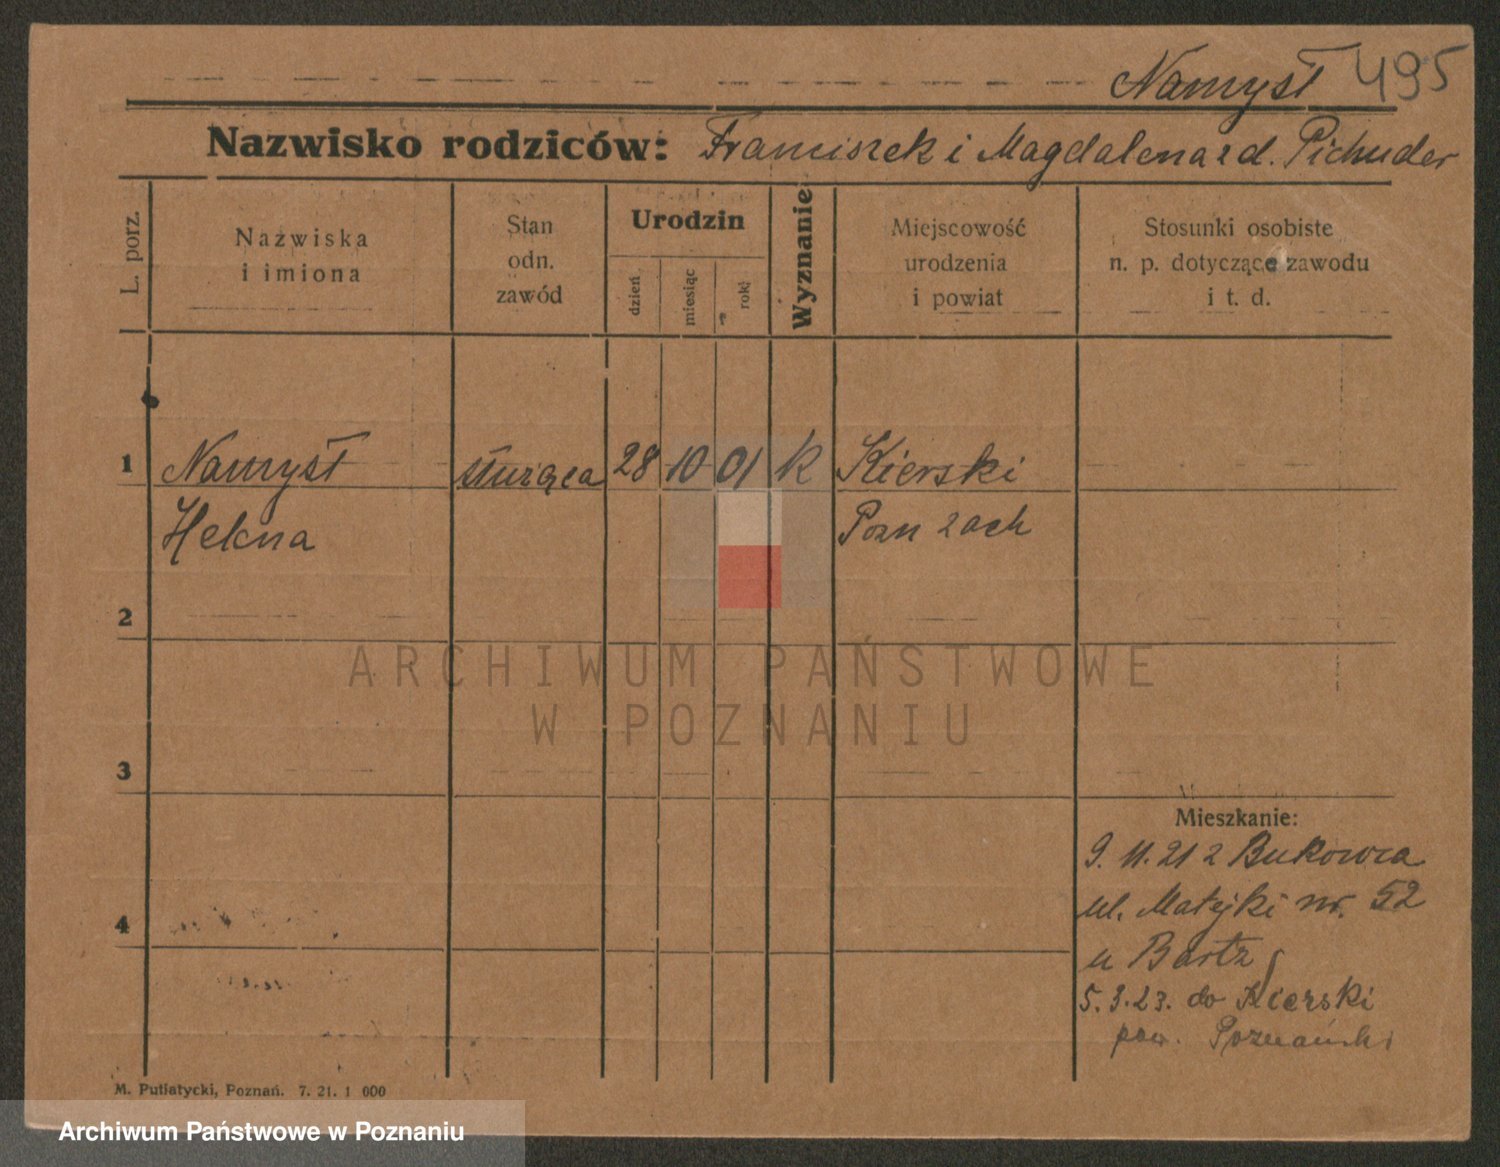 Namysł 495
Nazwisko rodziców: Franciszek i Magdalena z d. Pichuder
L. porz.
Nazwiska
i imiona
Stan
odn.
zawód
Urodzin
dzień
miesiąc
rok
Wyznanie
Miejscowość
urodzenia
i powiat
Stosunki osobiste
n. p. dotyczące zawodu
i t. d.
1 Namysł służąca 28 10 01 k Kierski
Helena Pozn zach
2
3
4
Mieszkanie:
9. 11. 21 z Bukowca
ul. Matejki nr. 52
u Bartz
5. 3. 23. do Kierski
pow. Poznański
M. Putiatycki, Poznań. 7. 21. 1 000
ARCHIWUM PAŃSTWOWE
W POZNANIU
Archiwum Państwowe w Poznaniu